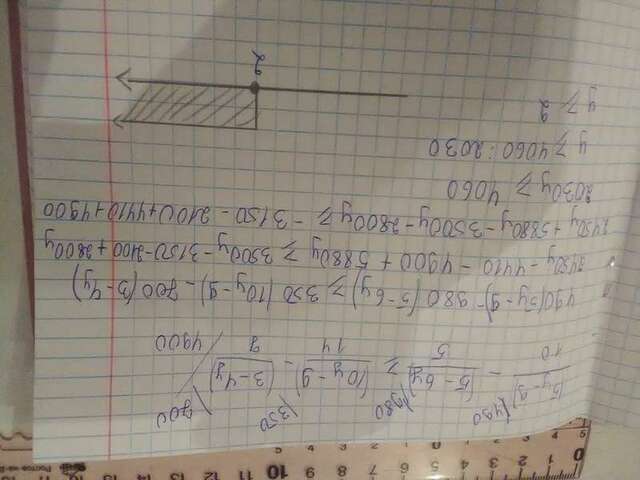 (5y-9)/10 |490 - (5-6y)/5 |980 ≥ (10y-9)/14 |350 - (3-4y)/7 |700 / 4900
490(5y-9) - 980(5-6y) ≥ 350(10y-9) - 700(3-4y)
2450y - 4410 - 4900 + 5880y ≥ 3500y - 3150 - 2100 + 2800y
2450y + 5880y - 3500y - 2800y ≥ -3150 - 2100 + 4410 + 4900
2030y ≥ 4060
y ≥ 4060 : 2030
y ≥ 2
2